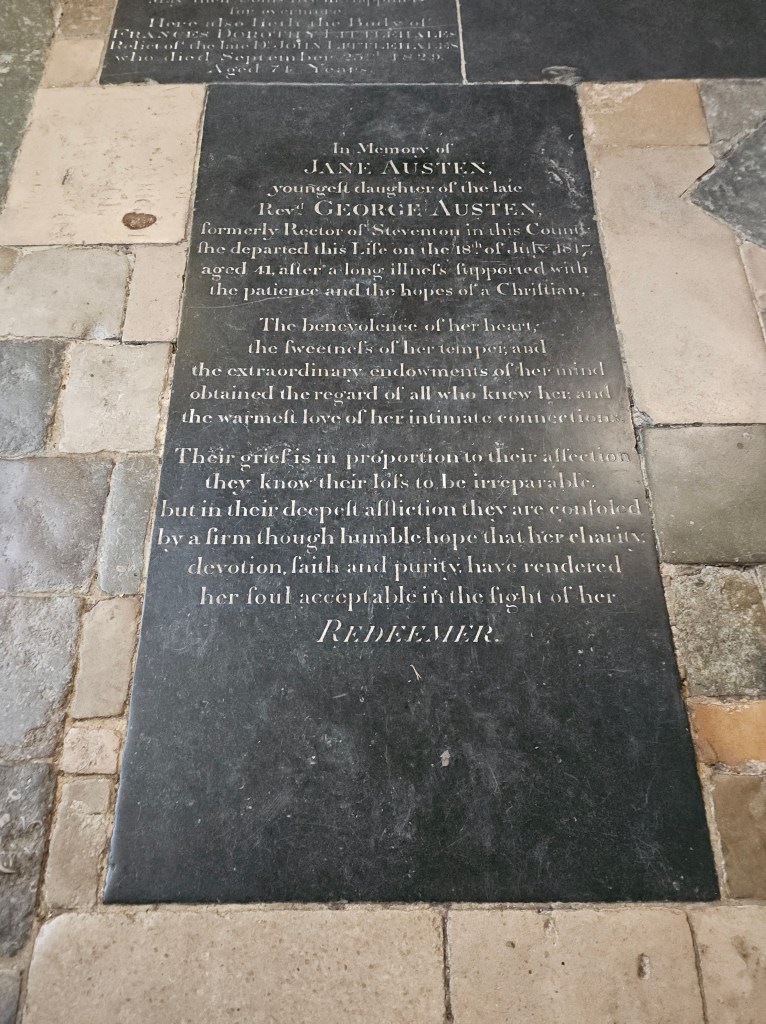 may then comfort
for evermore
Here also lieth the Body of
FRANCES DOROTHY LITTLEHALES
Relict of the late Dr. JOHN LITTLEHALES
who died September 25th 1829.
Aged 74 Years.
In Memory of
JANE AUSTEN,
youngeſt daughter of the late
Revd. GEORGE AUSTEN,
formerly Rector of Steventon in this County
ſhe departed this Life on the 18th of July 1817,
aged 41, after a long illneſs ſupported with
the patience and the hopes of a Chriſtian,
The benevolence of her heart,
the ſweetneſs of her temper, and
the extraordinary endowments of her mind
obtained the regard of all who knew her, and
the warmeſt love of her intimate connections.
Their grief is in proportion to their affection
they know their loſs to be irreparable,
but in their deepeſt affliction they are conſoled
by a firm though humble hope that her charity,
devotion, faith and purity, have rendered
her ſoul acceptable in the ſight of her
REDEEMER.